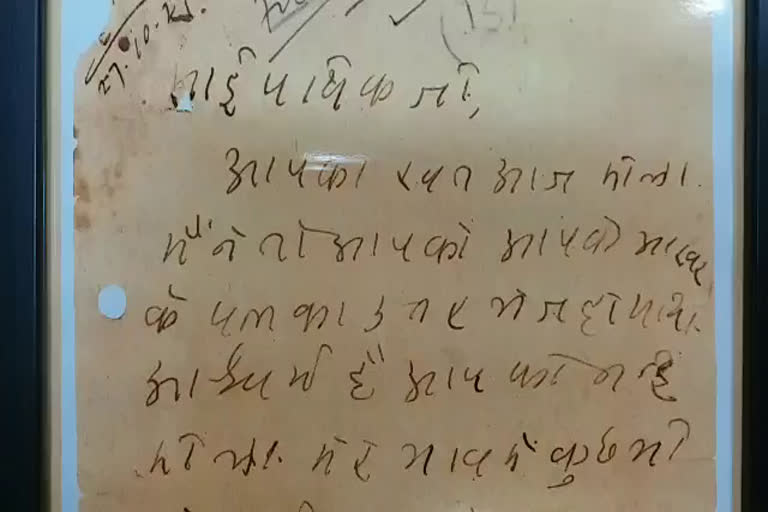 27.10.25.
भाई पथिक जी,
आपका खत आज मीला.
मैंने तो आपको आपके आखर
के पत्रका उत्तर भेज दीया था.
आश्चर्य है आप को नहि
मीला. मेरे में कुछ भी